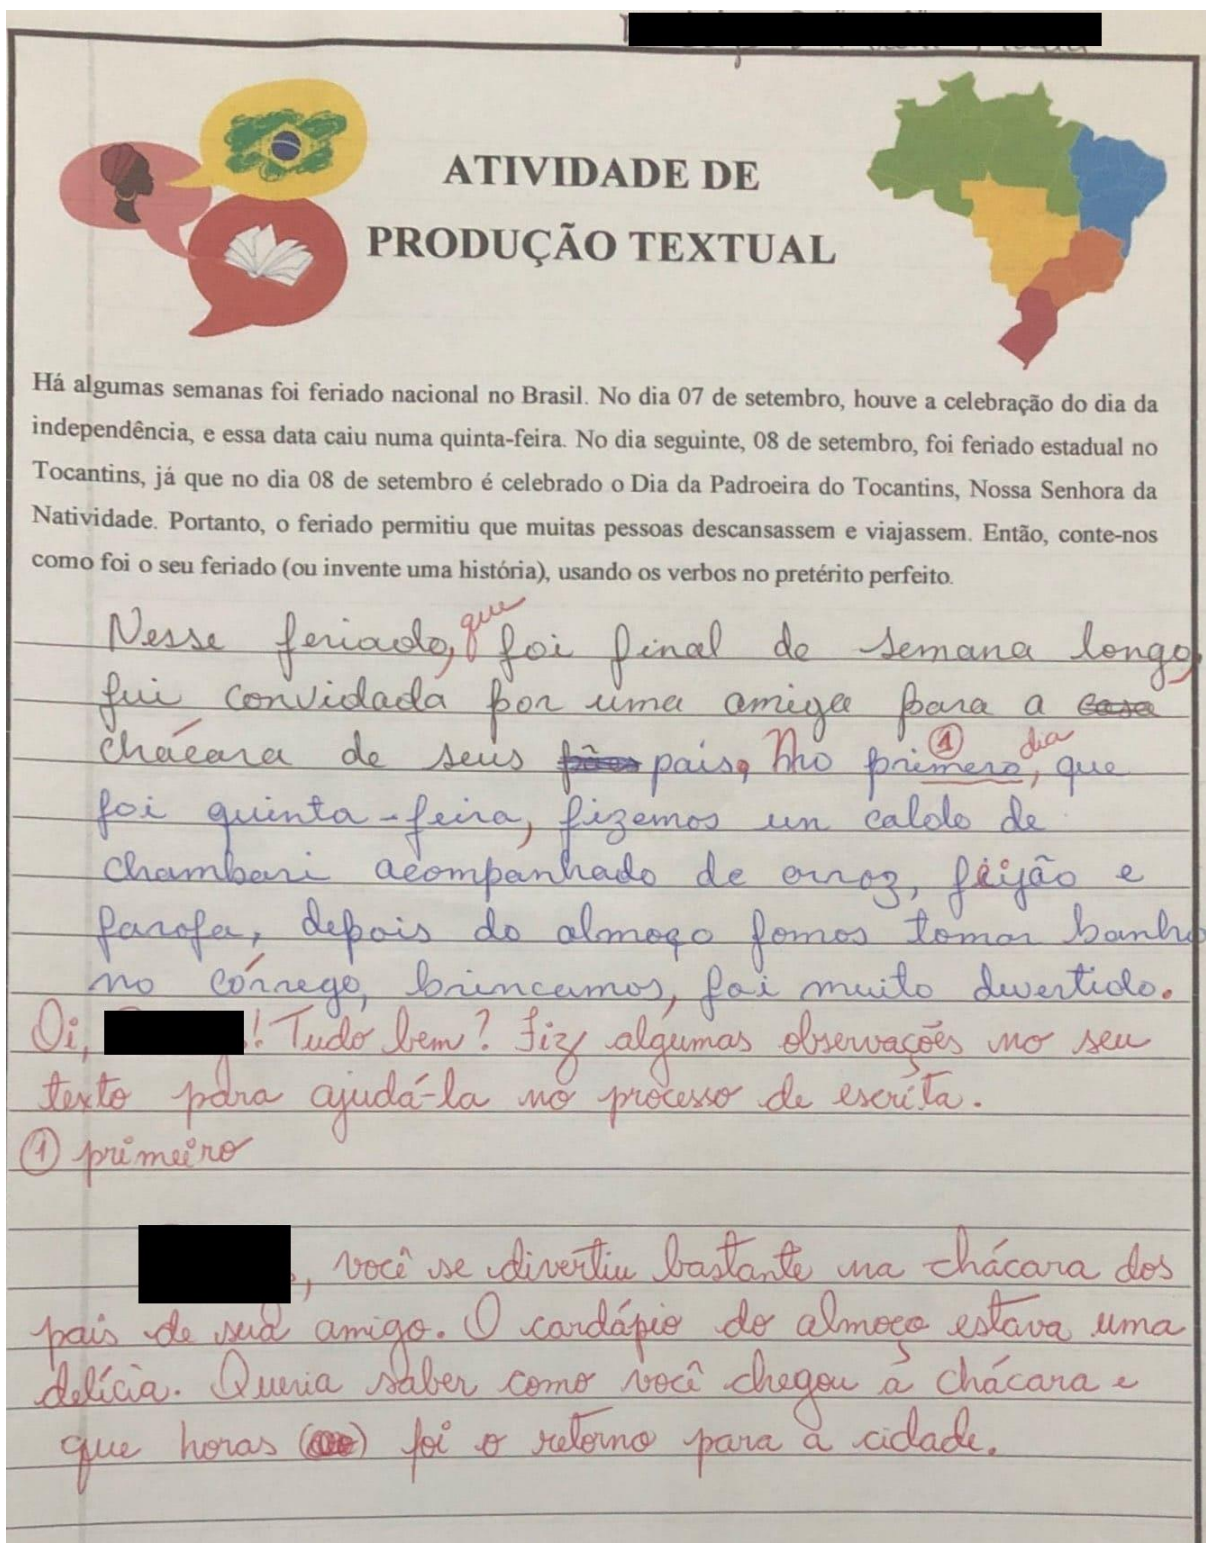 ATIVIDADE DE
PRODUÇÃO TEXTUAL
Há algumas semanas foi feriado nacional no Brasil. No dia 07 de setembro, houve a celebração do dia da
independência, e essa data caiu numa quinta-feira. No dia seguinte, 08 de setembro, foi feriado estadual no
Tocantins, já que no dia 08 de setembro é celebrado o Dia da Padroeira do Tocantins, Nossa Senhora da
Natividade. Portanto, o feriado permitiu que muitas pessoas descansassem e viajassem. Então, conte-nos
como foi o seu feriado (ou invente uma história), usando os verbos no pretérito perfeito.
Nesse feriado, que foi final de semana longo,
fui convidada por uma amiga para a casa
chácara de seus pais. No primero ① dia, que
foi quinta-feira, fizemos un caldo de
chambari acompanhado de arroz, feijão e
farofa, depois do almoço fomos tomar banho
no córrego, brincamos, foi muito divertido.
Oi, ! Tudo bem? Fiz algumas observações no seu
texto para ajudá-la no processo de escrita.
① primeiro
, você se divertiu bastante na chácara dos
pais de sua amigo. O cardápio do almoço estava uma
delícia. Queria saber como você chegou à chácara e
que horas foi o retorno para a cidade.